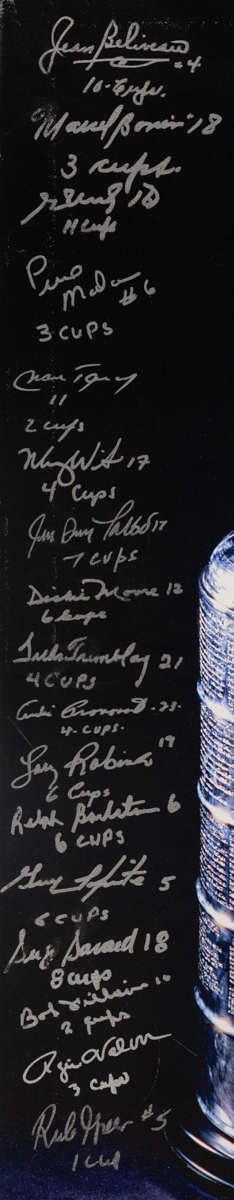 Jean Beliveau #4
10 Cups.
Marcel Bonin 18
3 cups.
11 Cups
Paul
Mcd #6
3 CUPS
11
2 cups
17
4 Cups
Jean Guy Talbot 17
7 CUPS
Dickie Moore 12
6 Cups
Gilles Tremblay 21
4 CUPS
23
4 CUPS.
Larry Robinson 19
6 Cups
Ralph Backstrom 6
6 CUPS
Guy Lapointe 5
6 CUPS
Serge Savard 18
8 cups
Bob Fillion 10
2 Cups
Rogie Vachon
3 Cups
#5
1 CUP